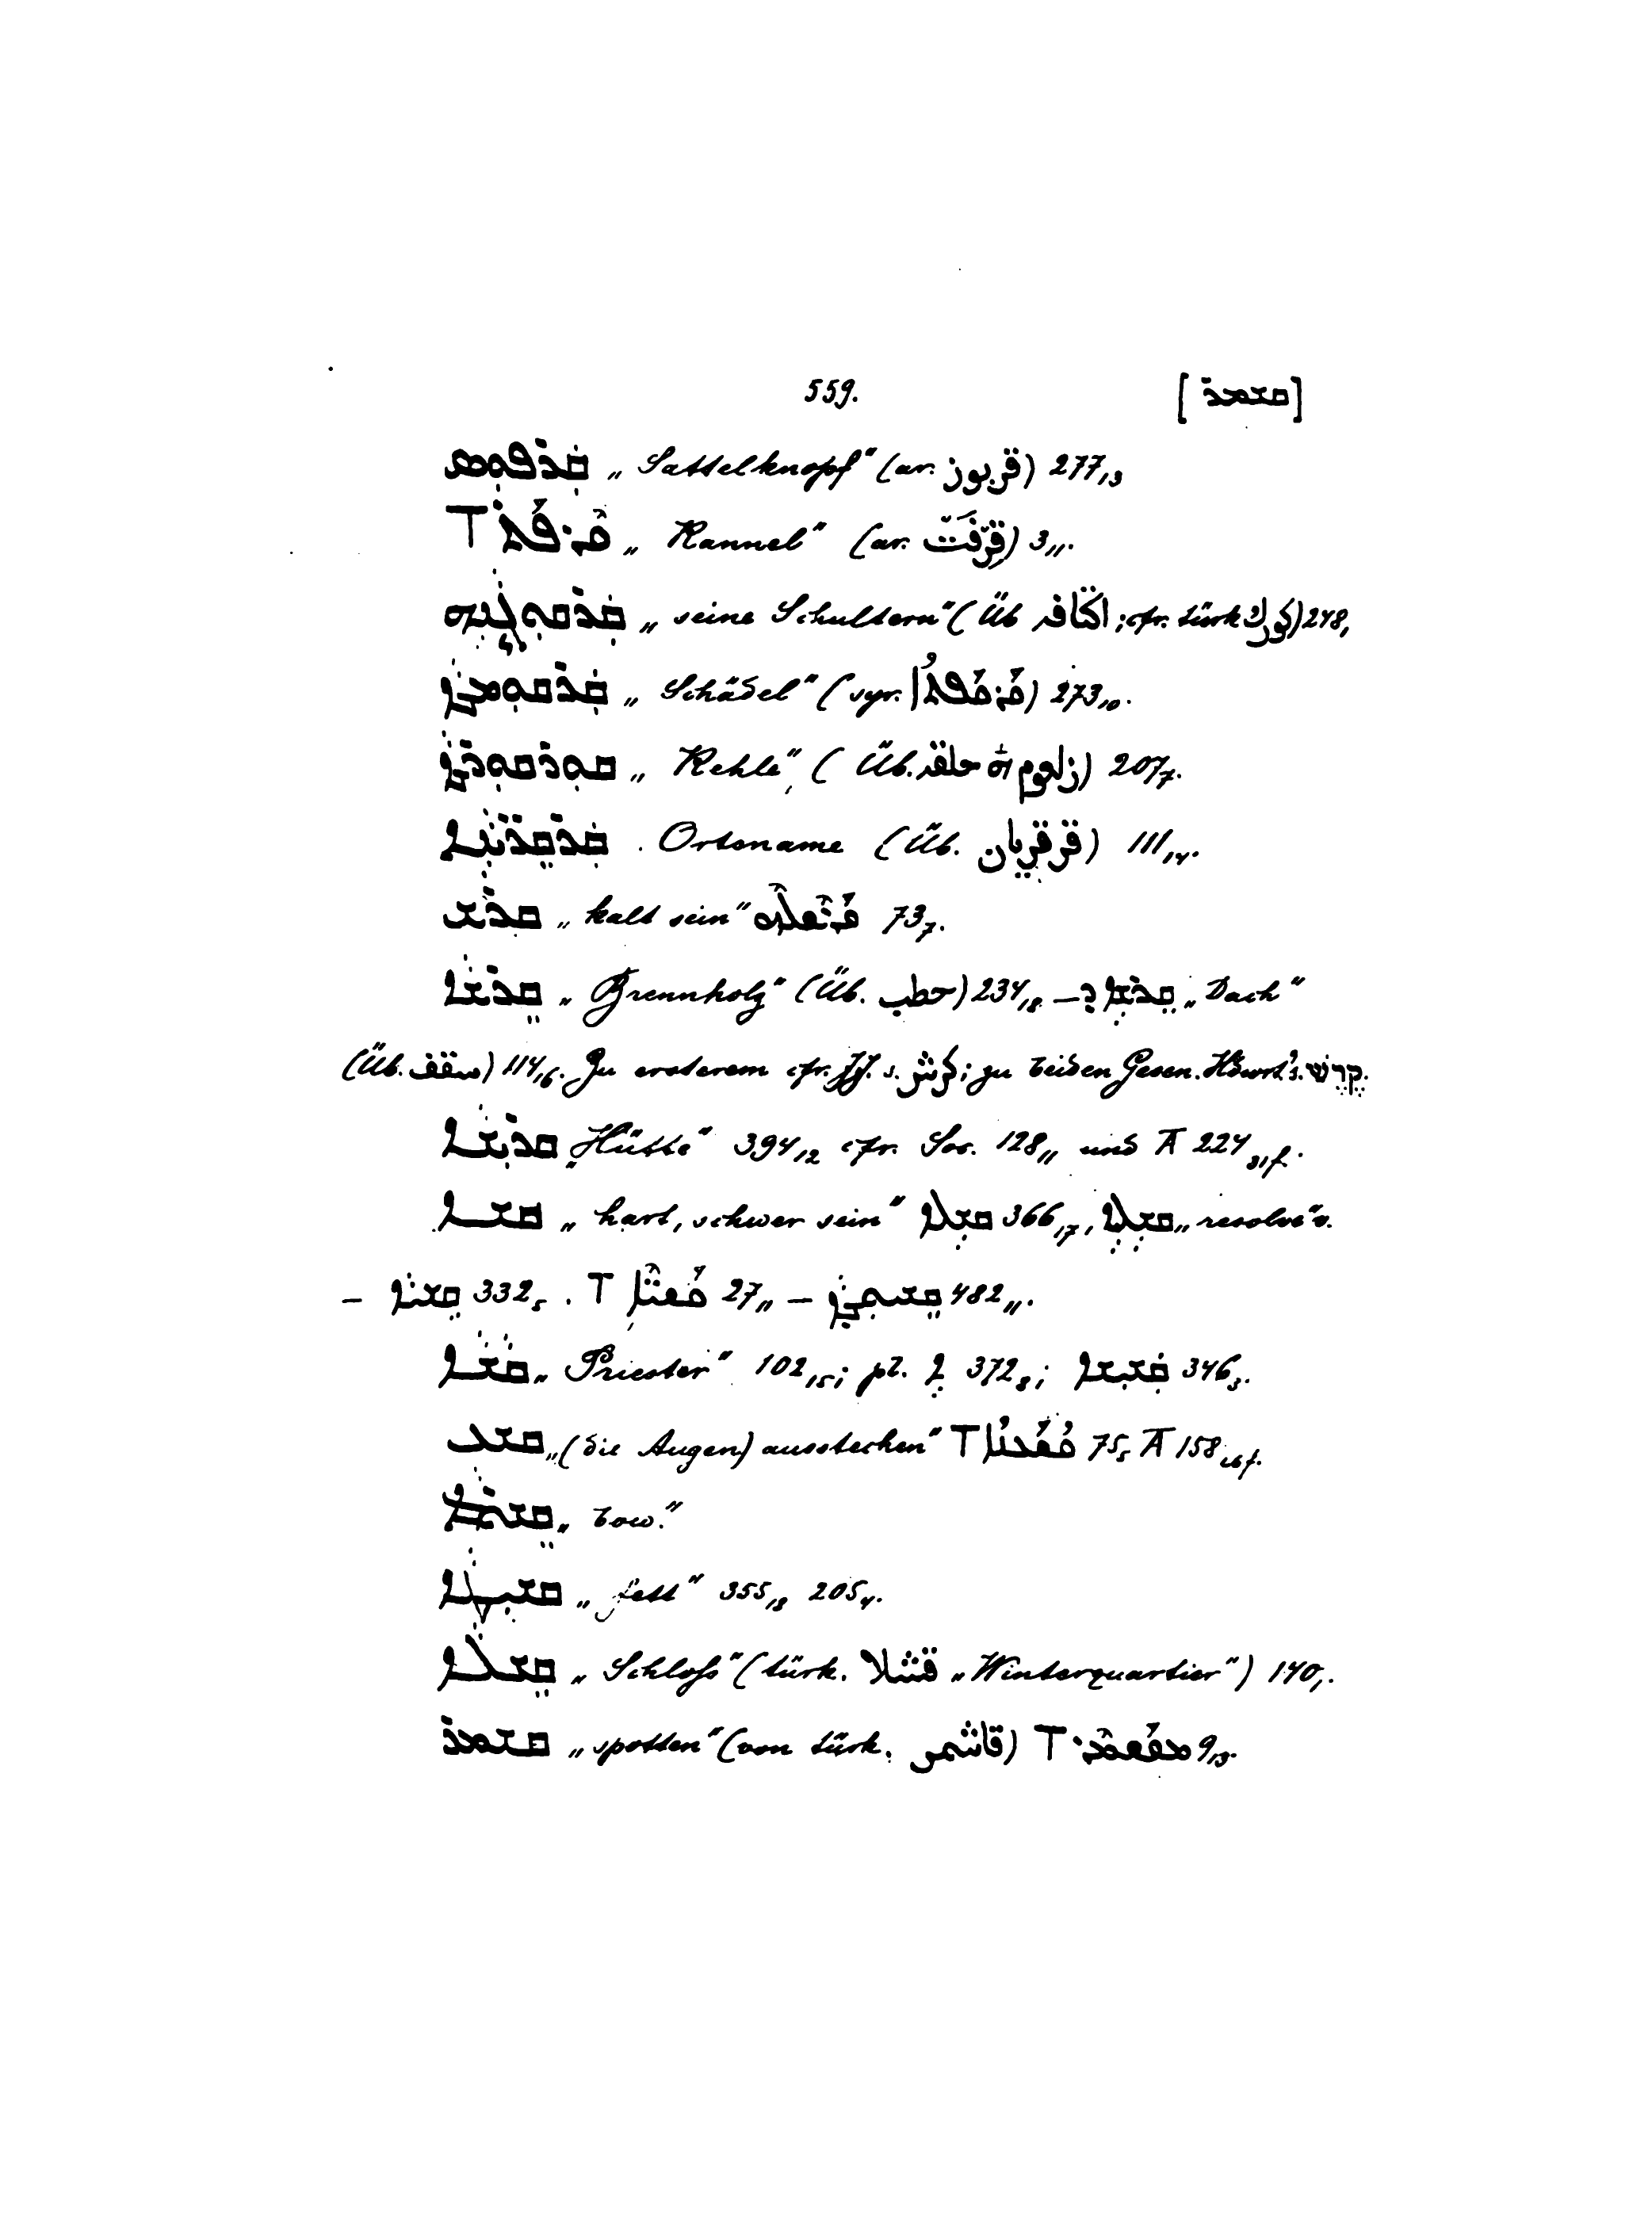 559. [ܩܫܡܪ]
ܩܪܦܘܣ „Sattelknopf“ (ar. قربوز) 277,₁₃
ܩܪܦܬ T „Kannel“ (ar. قرّفت) 3₁₁.
„seine Schultern“ (Üb اكتافه; cfr. türk كورك) 248,
„Schädel“ (syr. ܩܪܩܦܬܐ) 273,₁₀.
„Kehle“, (Üb. حلقه زلعوم) 207₇.
. Ortsname (Üb. قرقريان) 111,₁₄.
ܩܪܫ „kalt sein“ 73₇.
ܩܪܫܐ „Brennholz“ (Üb. حطب) 234,₁₈ — „Dach“
(Üb. سقف) 114,₁₆. Zu ersterem cfr. JJ. s. كرش; zu beiden Gesen. Hdwrt.⁹ s. קֶרֶשׁ.
ܩܪܝܫܐ „Hütte“ 394,₁₂ cfr. Soc. 128₁₁ und A 224 ₃₁f.
ܩܫܐ „hart, schwer sein“ 366,₁₇, „resolve“ v.
— 332₅. T 27₁₁ — 482₁₁.
ܩܫܐ „Priester“ 102,₁₅; pl. 372₈; 346₃.
„(die Augen) ausstechen“ T 75₅ A 158 ₂₆f.
ܩܫܬܐ „bow.“
ܩܫܝܛܐ „fett“ 355,₁₈ 205₄.
ܩܫܠܐ „Schloß“ (türk. قشلا „Winterquartier“) 140,.
ܩܫܡܪ „spotten“ (von türk. قاشمر) T 9,₁₃.